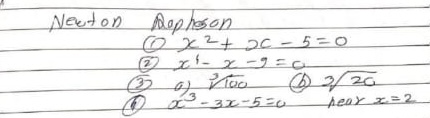 Newton Rapheson
① x² + x - 5 = 0
② x⁴ - x - 9 = 0
③ a) ∛100 ⓑ ∛20
④ x³ - 3x - 5 = 0 near x = 2